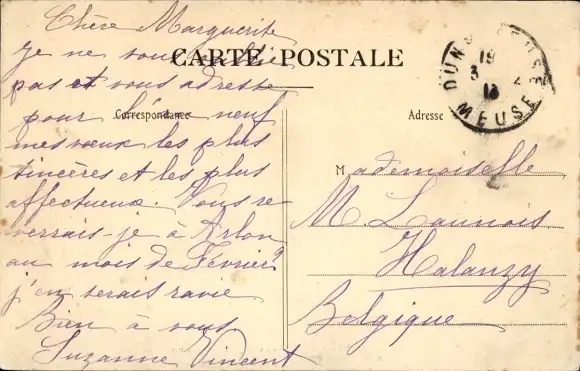 CARTE POSTALE
Correspondance
Adresse
DUN S MEUSE
MEUSE
19
3
13
Chère Marguerite
Je ne vous oublie
pas et vous adresse
pour l'an neuf
mes vœux les plus
sincères et les plus
affectueux. Vous re
verrais-je à Arlon
au mois de Février?
j'en serais ravie
Bien à vous
Suzanne Vincent
Mademoiselle
M Launois
Halanzy
Belgique